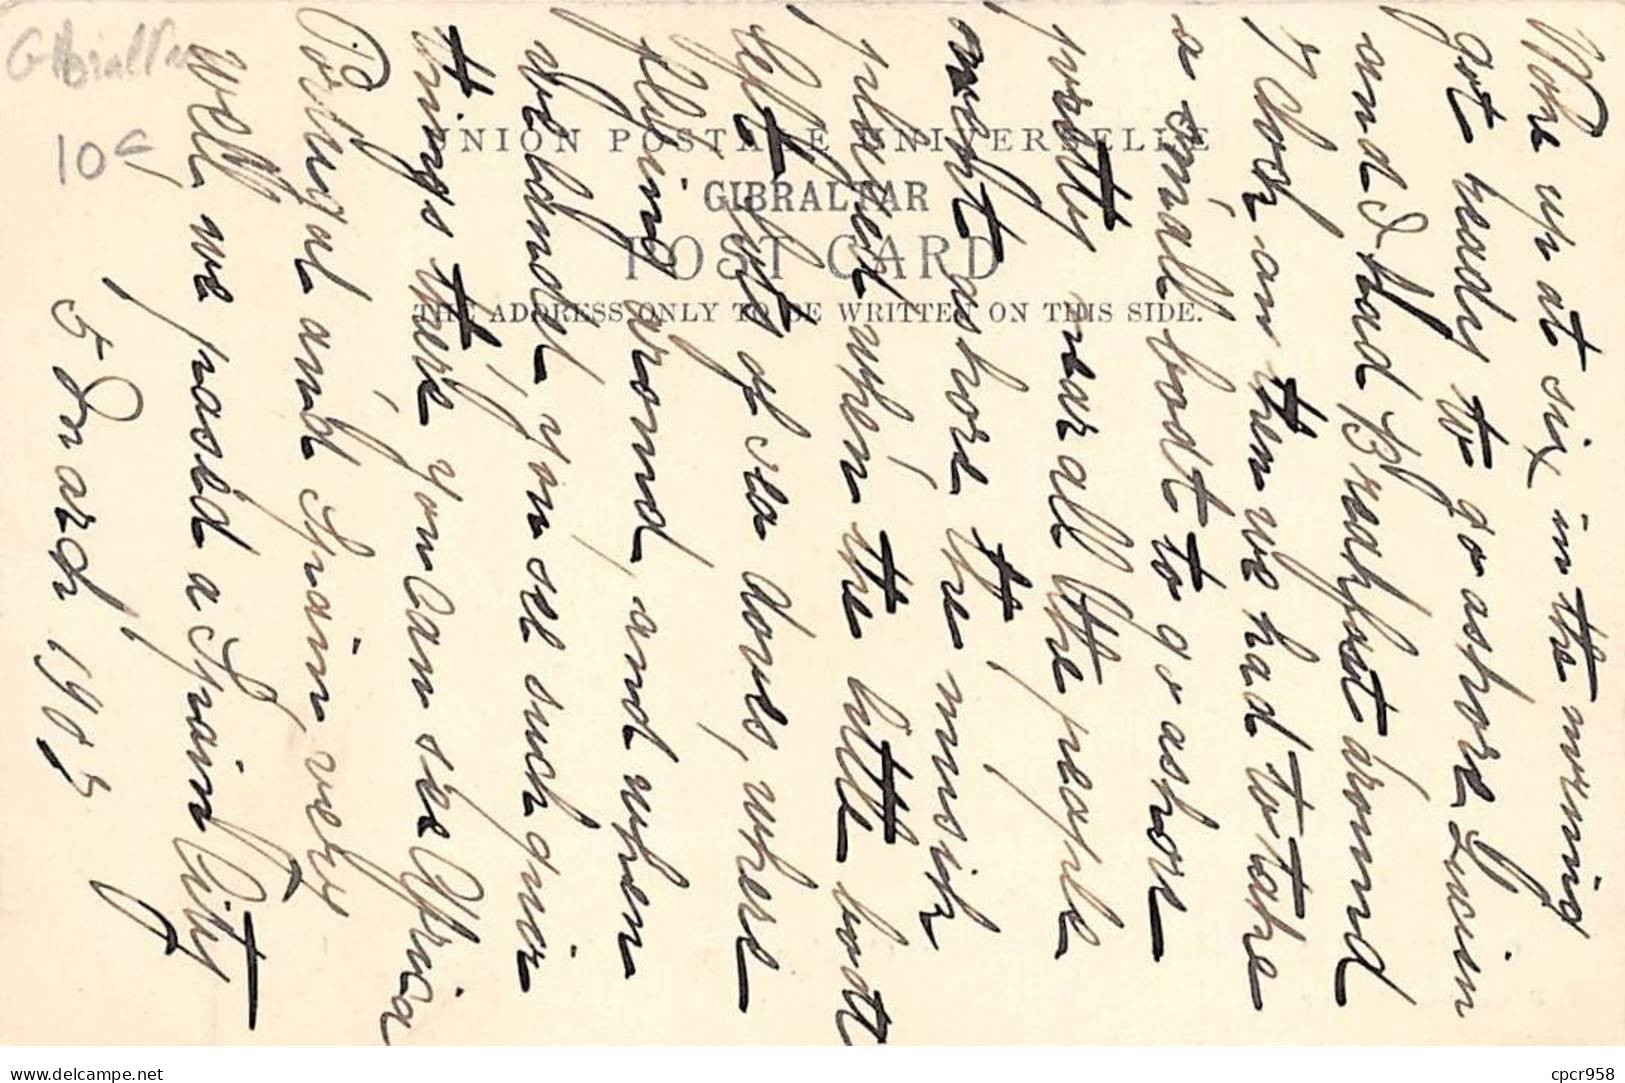 Gibraltar
10c
UNION POSTALE UNIVERSELLE
GIBRALTAR
POST CARD
THE ADDRESS ONLY TO BE WRITTEN ON THIS SIDE.
Woke up at six in the morning
got ready to go ashore Lucien
and I had Breakfast around
7 clock an then we had to take
a small boat to go ashore
pretty near all the people
went ashore the musik
played when the little boat
left, lots of sea doves, where
flying around, and when
we landed, you see such quir
things there you can see Africa
Portugal and Spain, very
well. we pased a Spain City
5 March 1905